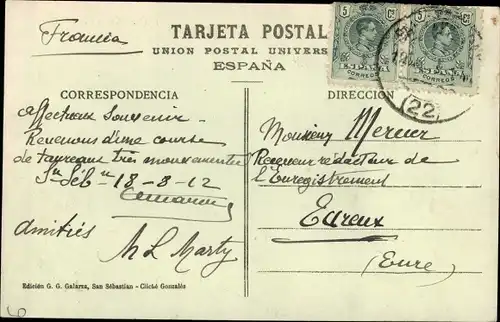 Francia
TARJETA POSTAL
UNION POSTAL UNIVERS
ESPAÑA
5 Cs
CORREOS
Cs
CORREOS
(22)
CORRESPONDENCIA
Affectueux Souvenir
Revenons d'une course
de Taureaux très mouvementée
Sn Séb n 18-8-12
amitiés
M L Marty
DIRECCIÓN
Monsieur Mercier
Receveur rédacteur de
l'Enregistrement
Evreux
(Eure)
Edición G. G. Galarza, San Sebastián - Cliché González